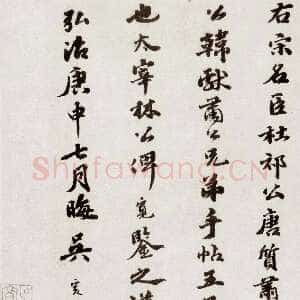 右宗名臣杜祁公唐質肅
公韓獻肅公兄弟手帖五
也太宰林公俾寬鑒之
弘治庚申七月晦吳寬
Shufawang.CN